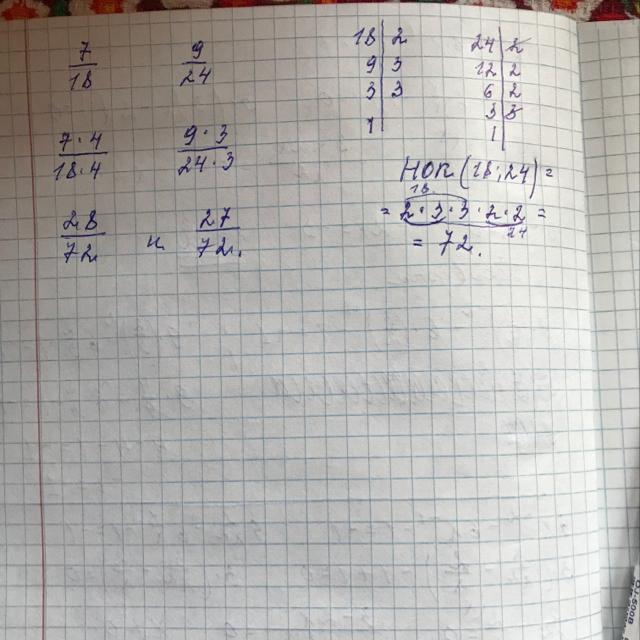 7/18 9/24
7·4/18·4 9·3/24·3
28/72 и 27/72.
18 | 2
9 | 3
3 | 3
1 |
24 | 2
12 | 2
6 | 2
3 | 3
1 |
НОК (18; 24) =
18
= 2·3·3·2·2 =
24
= 72.